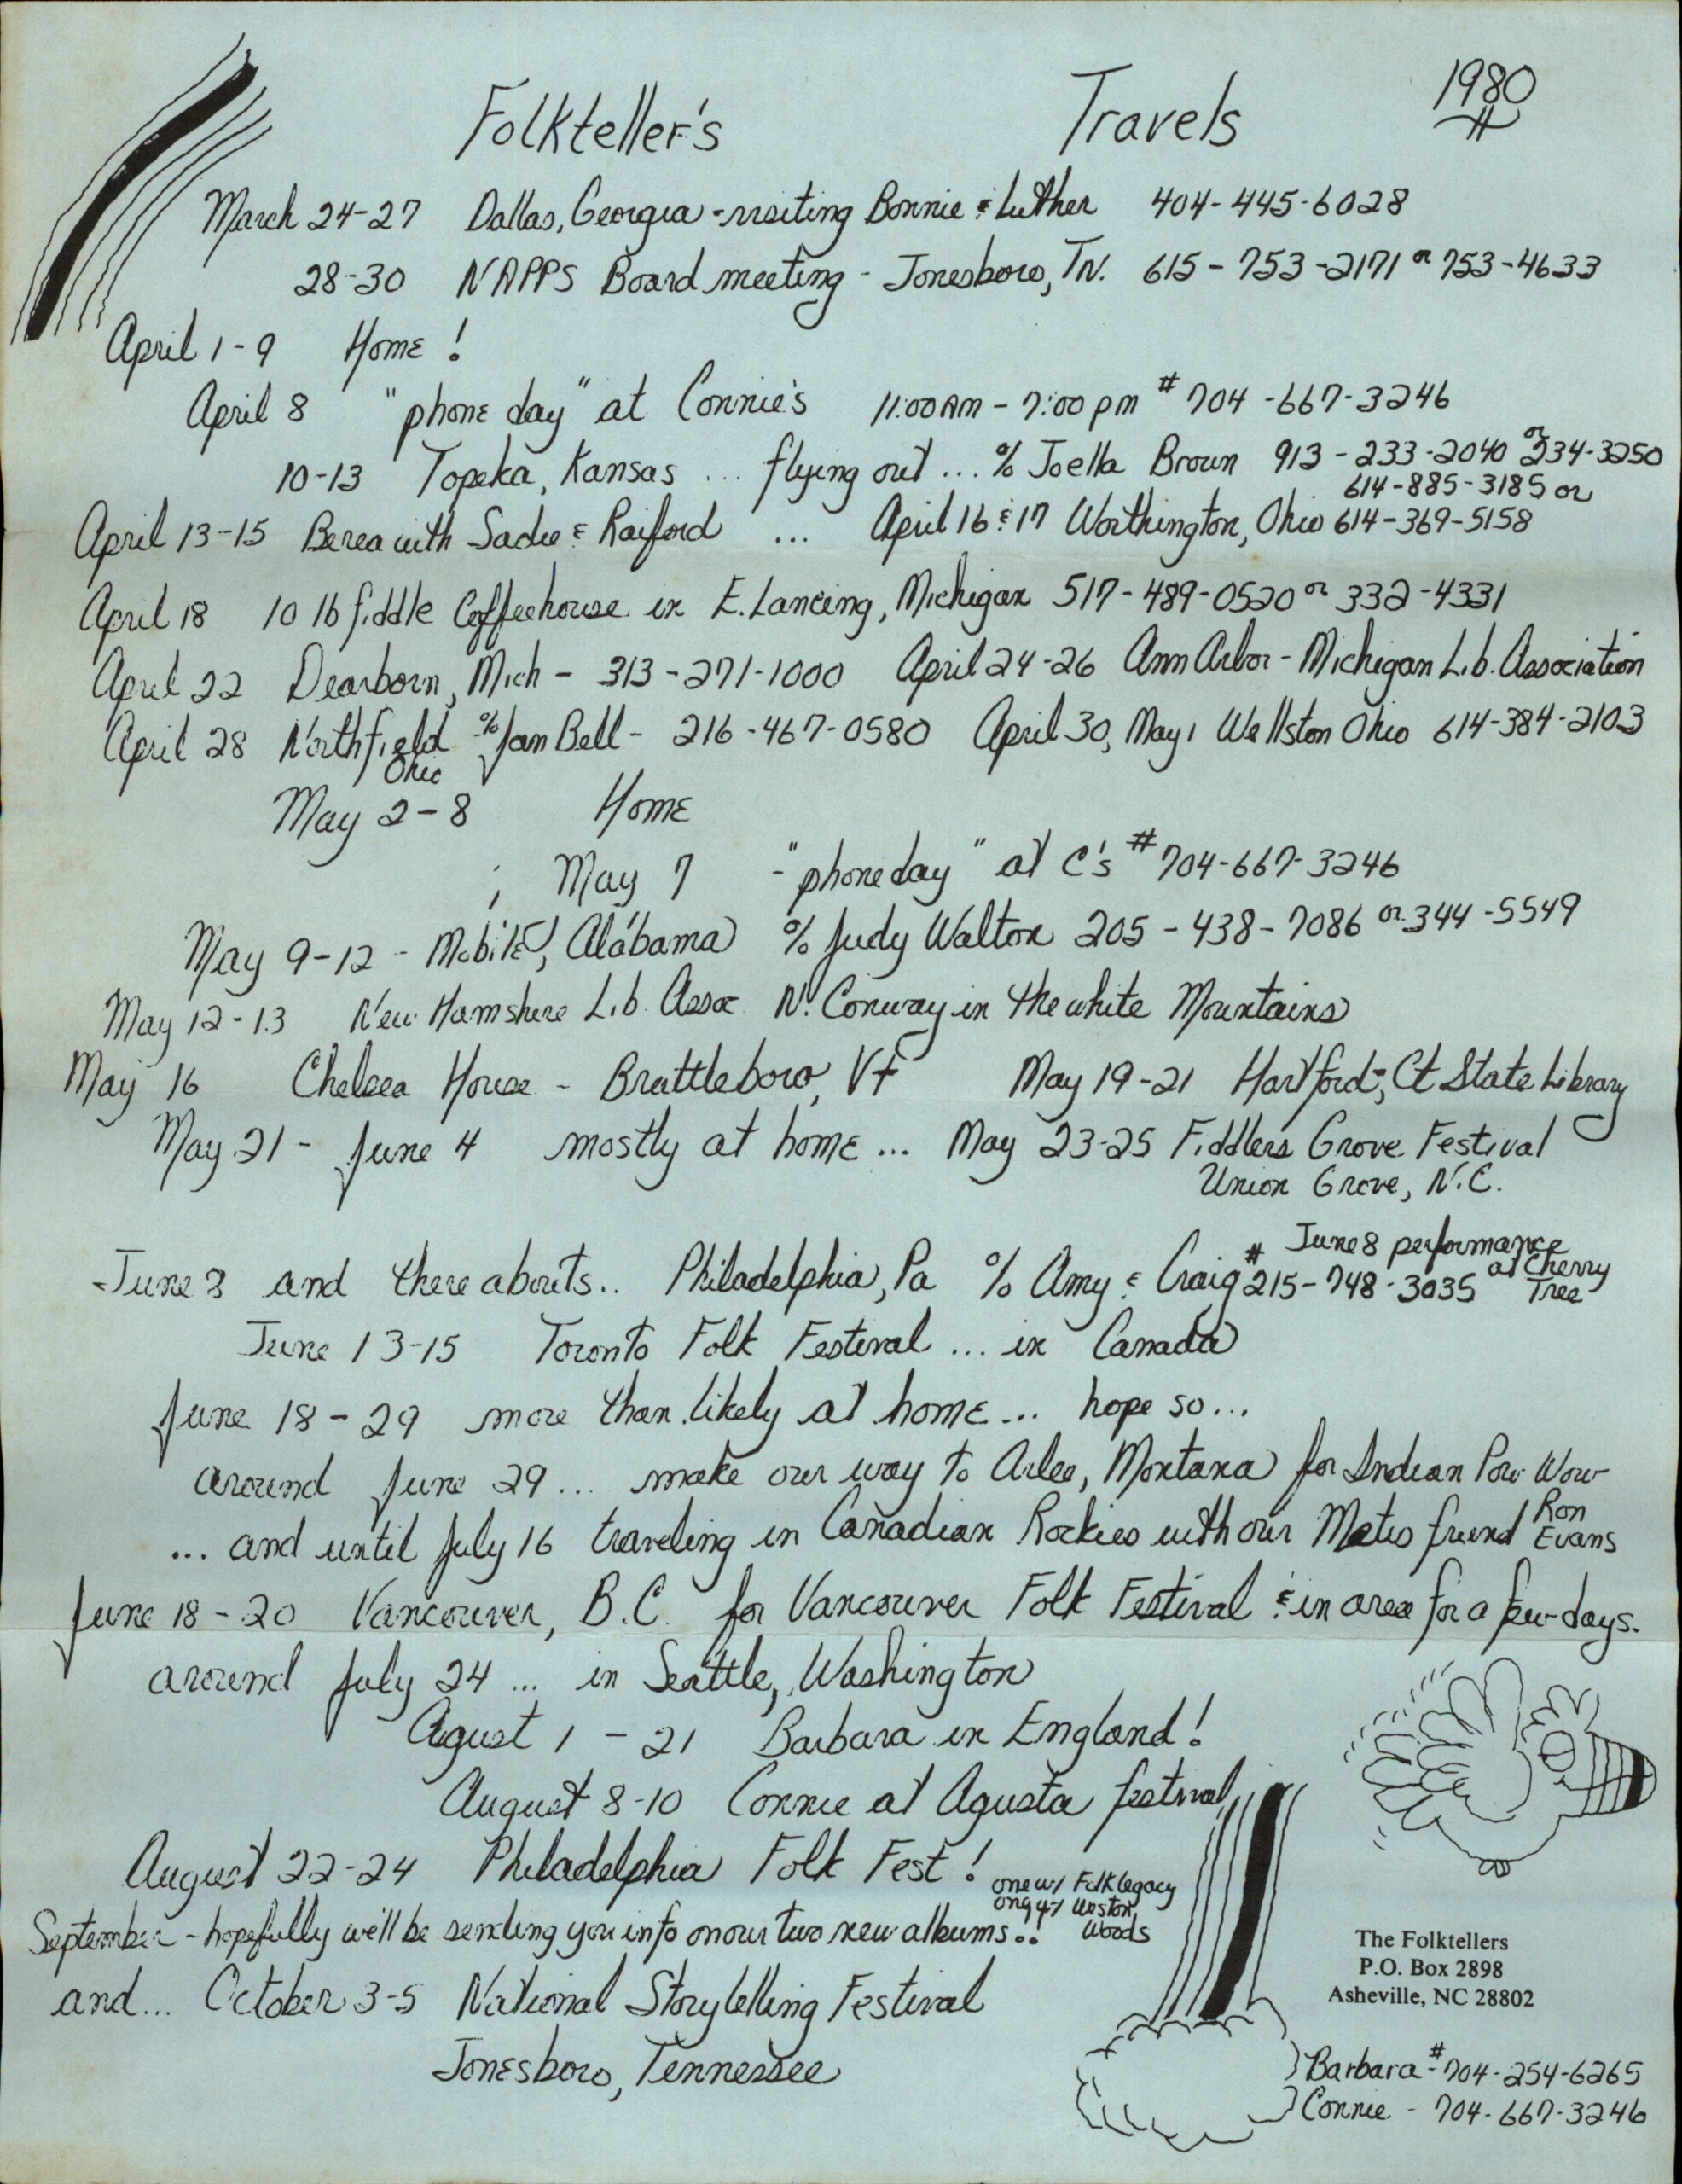 Folkteller's Travels 1980
March 24-27 Dallas, Georgia - visiting Bonnie & Luther 404-445-6028
28-30 NAPPS Board meeting - Jonesboro, TN. 615-753-2171 or 753-4633
April 1-9 Home!
April 8 "phone day" at Connie's 11:00 AM - 7:00 pm # 704-667-3246
10-13 Topeka, Kansas ... flying out ... % Joella Brown 913-233-2040 or 234-3250
614-885-3185 or
April 13-15 Berea with Sadie & Raiford ... April 16 & 17 Worthington, Ohio 614-369-5158
April 18 10 lb fiddle Coffeehouse in E. Lancing, Michigan 517-489-0520 or 332-4331
April 22 Dearborn, Mich - 313-271-1000 April 24-26 Ann Arbor - Michigan Lib. Association
April 28 Northfield - % Jan Bell - 216-467-0580 April 30, May 1 Wellston Ohio 614-384-2103
Ohio
May 2-8 Home
; May 7 - "phone day" at C's # 704-667-3246
May 9-12 - Mobile, Alabama % Judy Walton 205-438-7086 or 344-5549
May 12-13 New Hamshire Lib. Assoc. N. Conway in the white Mountains
May 16 Chelsea House - Brattleboro, Vt May 19-21 Hartford, Ct State Library
May 21 - June 4 mostly at home ... May 23-25 Fiddlers Grove Festival
Union Grove, N.C.
June 8 performance
at Cherry
Tree
June 8 and there abouts.. Philadelphia, Pa % Amy & Craig # 215-748-3035
June 13-15 Toronto Folk Festival ... in Canada
June 18-29 more than likely at home ... hope so ...
around June 29 ... make our way to Arlee, Montana for Indian Pow Wow
... and until July 16 traveling in Canadian Rockies with our Metis friend Ron
Evans
June 18-20 Vancouver, B.C. for Vancouver Folk Festival & in area for a few days.
around July 24 ... in Seattle, Washington
Agust 1 - 21 Barbara in England!
August 8-10 Connie at Agusta festival
August 22-24 Philadelphia Folk Fest!
one w/ Folk legacy
one w/ Weston
Woods
September - hopefully we'll be sending you info on our two new albums..
and... October 3-5 National Storytelling Festival
Jonesboro, Tennessee
The Folktellers
P.O. Box 2898
Asheville, NC 28802
Barbara - # 704-254-6265
Connie - 704-667-3246